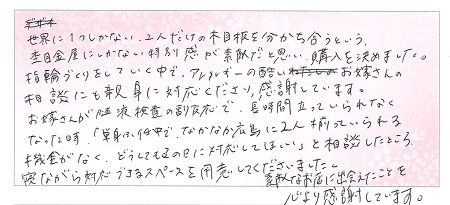 世界に1つしかない、2人だけの木目板を分かち合うという、
杢目金屋にしかない特別感が素敵だと思い、購入を決めました。
指輪づくりをしていく中で、アレルギーの酷いお嫁さんの
相談にも親身に対応くださり、感謝しています。
お嫁さんが血液検査の副反応で、長時間立っていられなく
なった時、「単身ふ任中で、なかなか広島に2人揃っていられる
機会がなく、どうしてもこの日に対応してほしい」と相談したところ、
寝ながら対応できるスペースを用意してくださいました。
素敵なお店に出会えたことを
心より感謝しています。